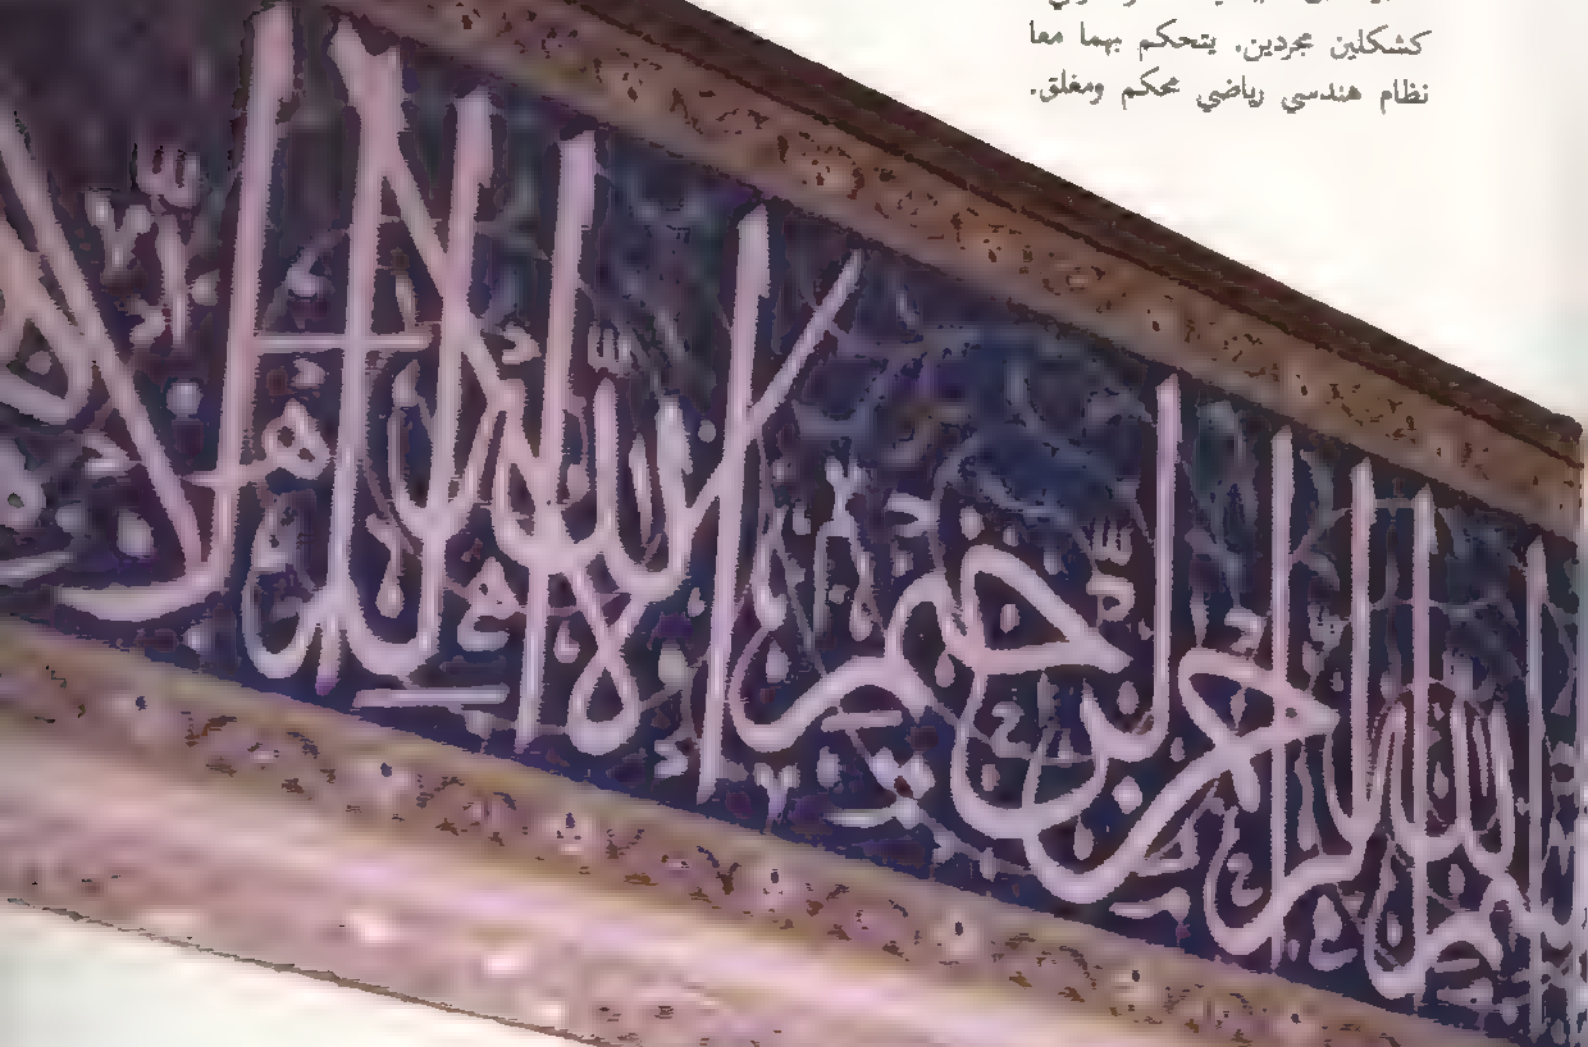 كشكلين مجردين. يتحكم بهما معا
نظام هندسي رياضي محكم ومغلق.
بسم الله الرحمن الرحيم الله لا إله إلا